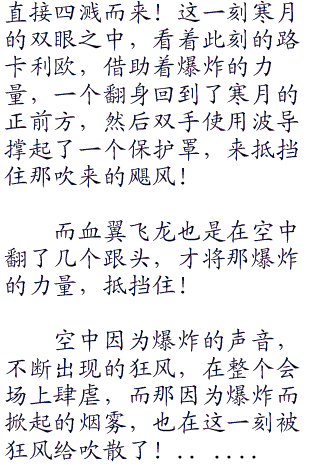 直接四溅而来！这一刻寒月
的双眼之中，看着此刻的路
卡利欧，借助着爆炸的力
量，一个翻身回到了寒月的
正前方，然后双手使用波导
撑起了一个保护罩，来抵挡
住那吹来的飓风！
而血翼飞龙也是在空中
翻了几个跟头，才将那爆炸
的力量，抵挡住！
空中因为爆炸的声音，
不断出现的狂风，在整个会
场上肆虐，而那因为爆炸而
掀起的烟雾，也在这一刻被
狂风给吹散了！．．．．．．